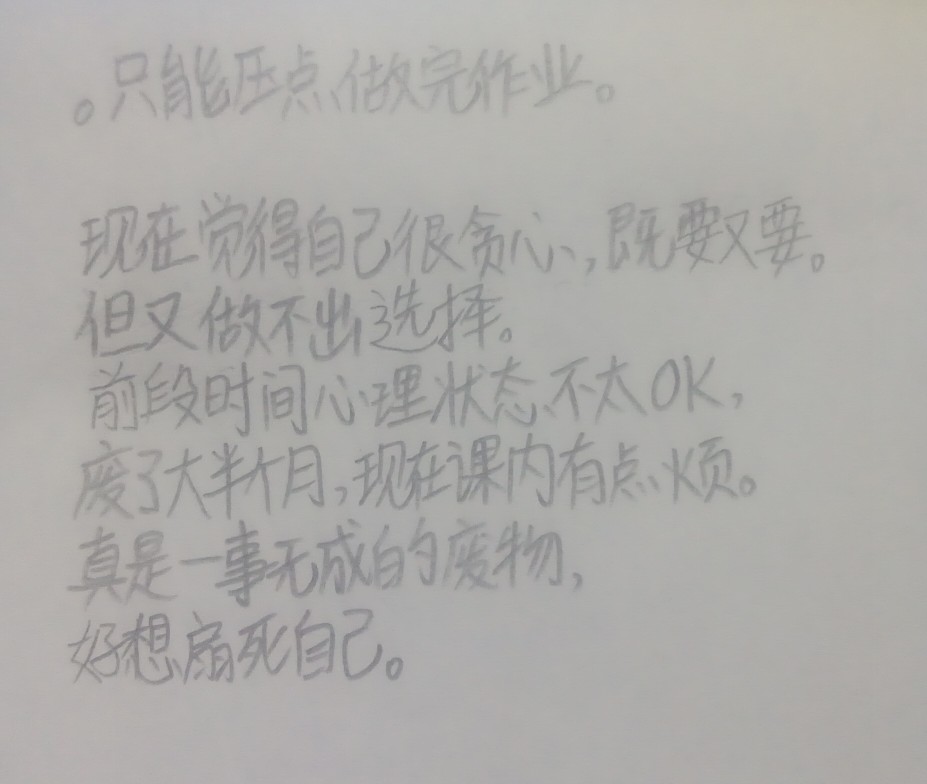 。只能压点做完作业。
现在觉得自己很贪心,既要又要。
但又做不出选择。
前段时间心理状态不太OK,
废了大半个月,现在课内有点烦。
真是一事无成的废物,
好想扇死自己。